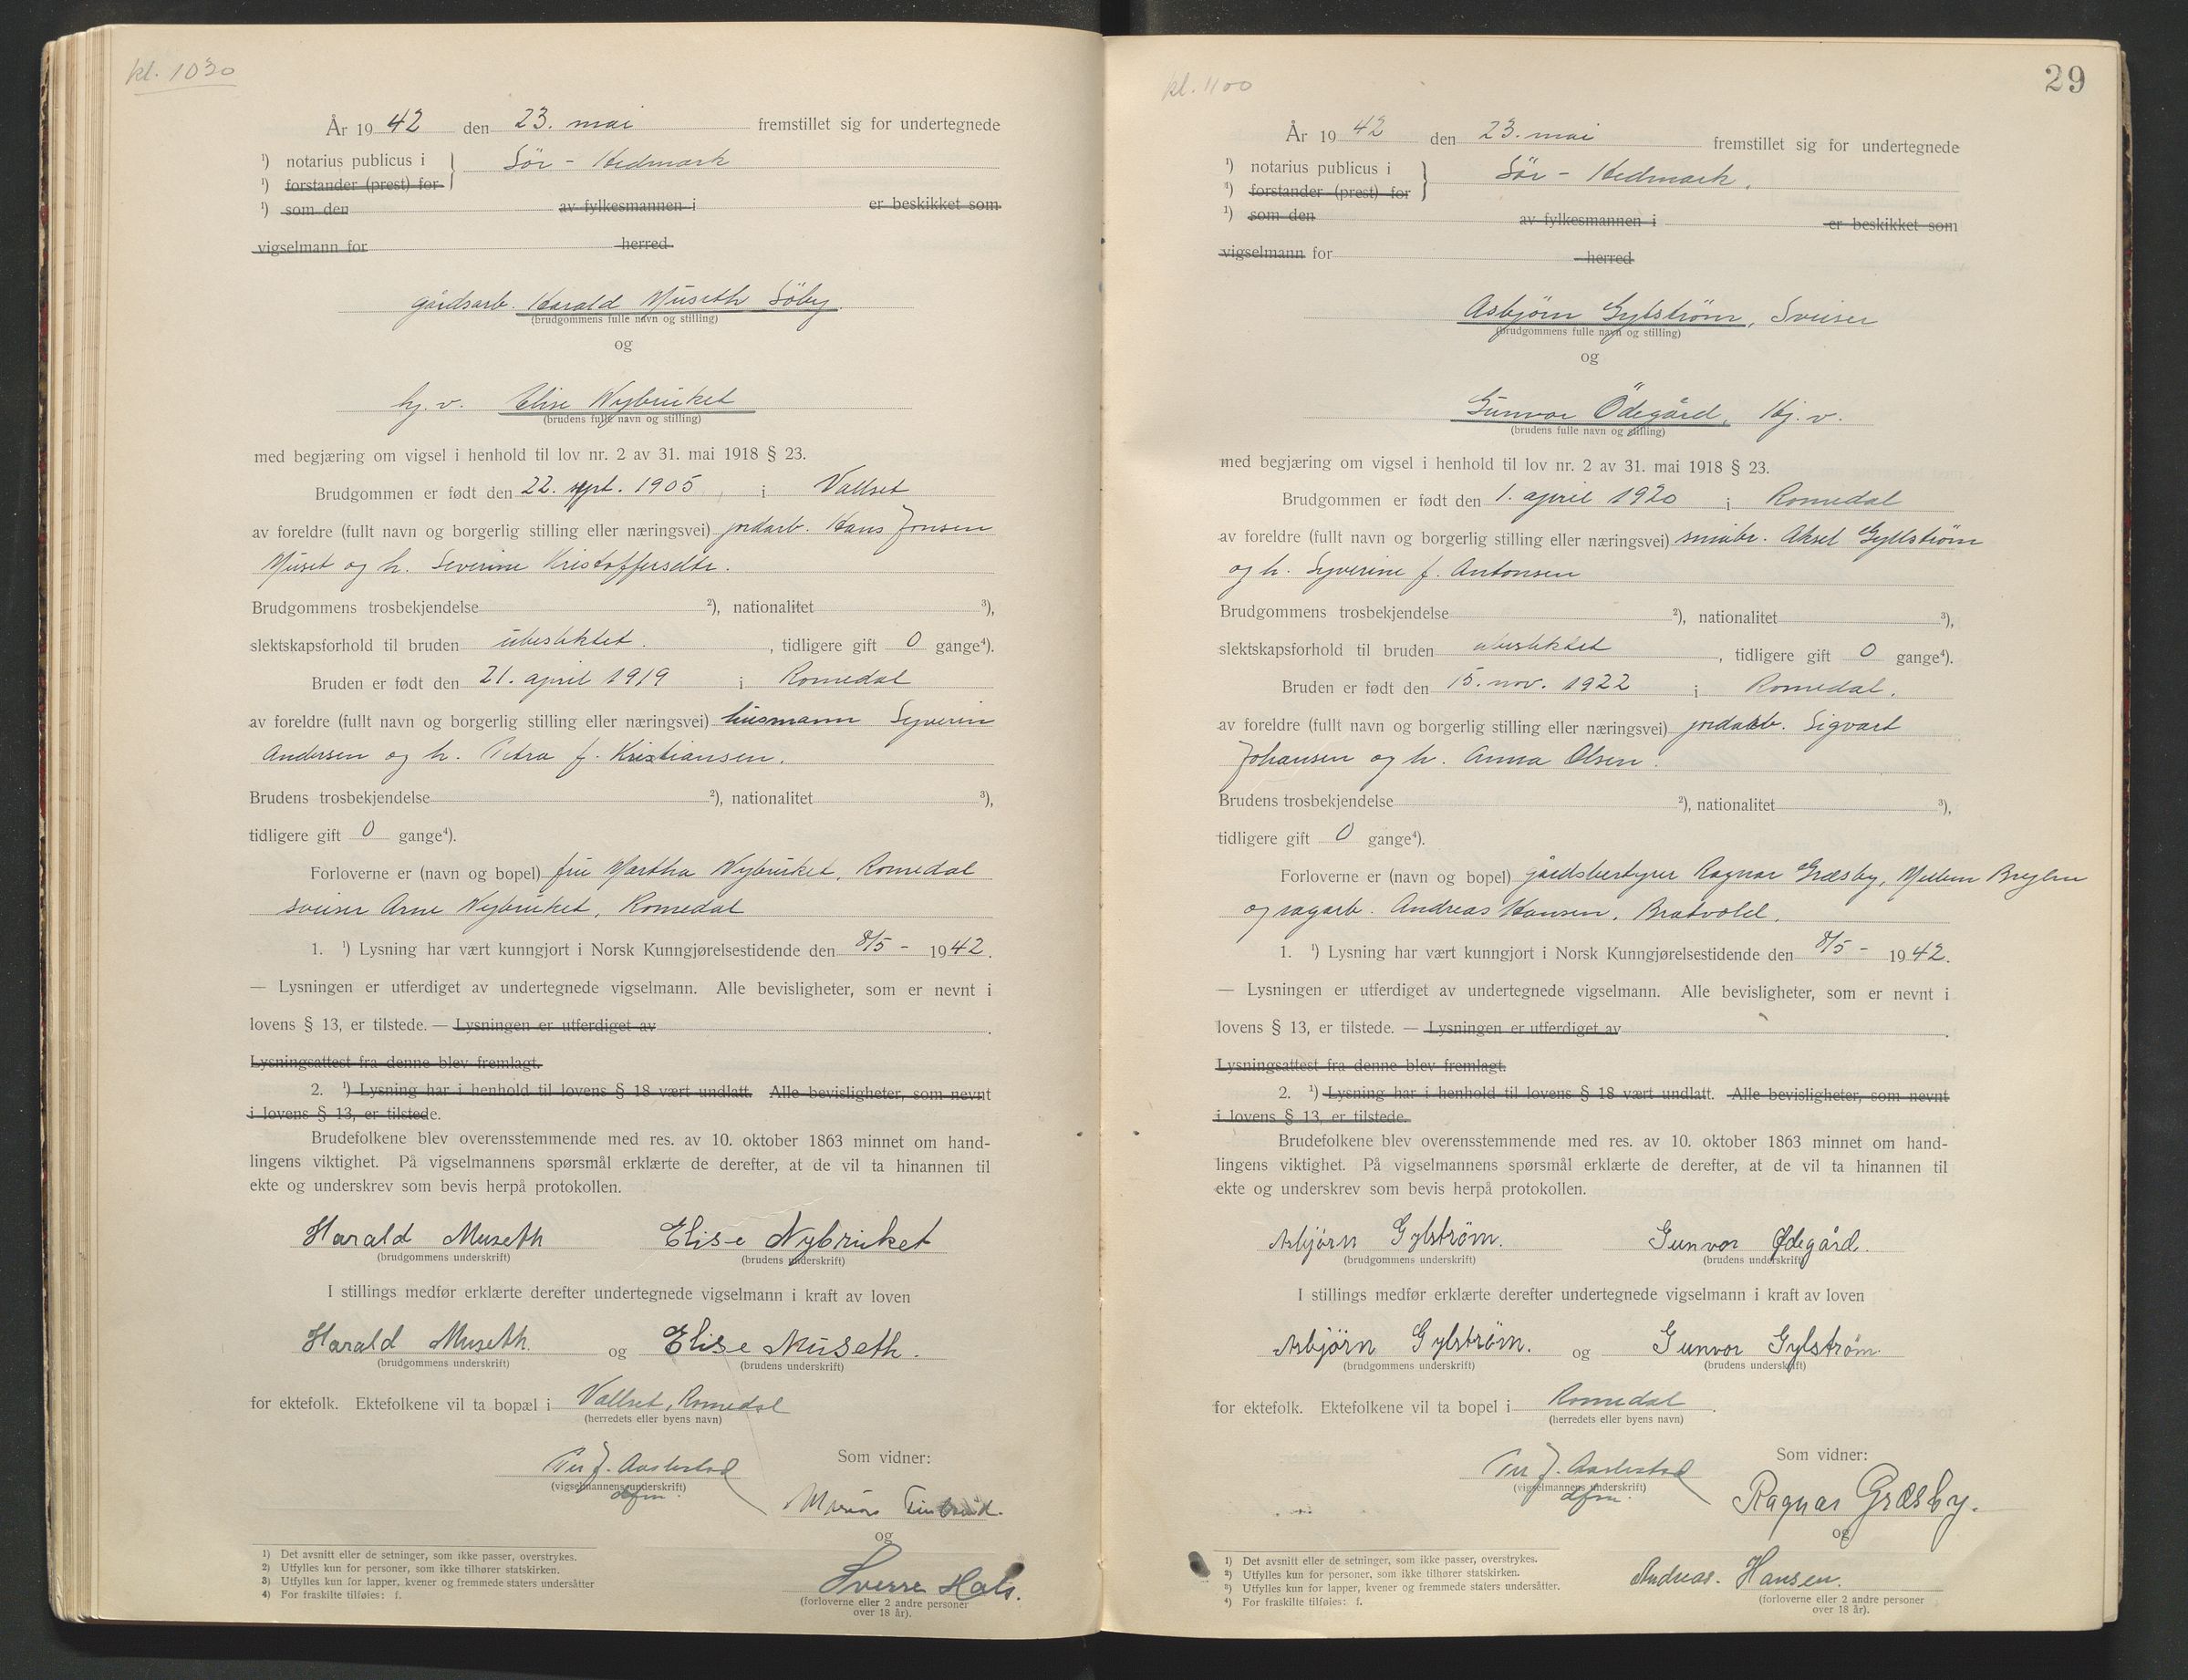 kl. 1030
År 1942 den 23. mai fremstillet sig for undertegnede
¹) notarius publicus i } Sör - Hedmark
¹) forstander (prest) for
¹) som den av fylkesmannen i er beskikket som
vigselmann for herred
gårdsarb. Harald Museth Söby
(brudgommens fulle navn og stilling)
og
hj. v. Elise Nybruket
(brudens fulle navn og stilling)
med begjæring om vigsel i henhold til lov nr. 2 av 31. mai 1918 § 23.
Brudgommen er født den 22. sept. 1905, i Vallset
av foreldre (fullt navn og borgerlig stilling eller næringsvei) jordarb. Hans Jonsen
Muset og h. Severine Kristoffersdtr.
Brudgommens trosbekjendelse ²), nationalitet ³),
slektskapsforhold til bruden ubeslektet. , tidligere gift 0 gange⁴).
Bruden er født den 21. april 1919 i Romedal
av foreldre (fullt navn og borgerlig stilling eller næringsvei) husmann Syverin
Andersen og h. Petra f. Kristiansen.
Brudens trosbekjendelse ²), nationalitet ³),
tidligere gift 0 gange⁴).
Forloverne er (navn og bopel) fru Martha Nybruket, Romedal
sveiser Arne Nybruket, Romedal
1. ¹) Lysning har vært kunngjort i Norsk Kunngjørelsestidende den 8/5 - 1942.
— Lysningen er utferdiget av undertegnede vigselmann. Alle bevisligheter, som er nevnt i
lovens § 13, er tilstede. — Lysningen er utferdiget av .
Lysningsattest fra denne blev fremlagt.
2. ¹) Lysning har i henhold til lovens § 18 vært undlatt. Alle bevisligheter, som nevnt
i lovens § 13, er tilstede.
Brudefolkene blev overensstemmende med res. av 10. oktober 1863 minnet om hand-
lingens viktighet. På vigselmannens spørsmål erklærte de derefter, at de vil ta hinannen til
ekte og underskrev som bevis herpå protokollen.
Harald Museth Elise Nybruket
(brudgommens underskrift) (brudens underskrift)
I stillings medfør erklærte derefter undertegnede vigselmann i kraft av loven
Harald Museth. og Elise Museth.
(brudgommens underskrift) (brudens underskrift)
for ektefolk. Ektefolkene vil ta bopæl i Vallset, Romedal
(herredets eller byens navn)
Per J. Aarlestad
(vigselmannens underskrift)
dfm.
Som vidner:
og
Sverre Hals.
(forloverne eller 2 andre personer
over 18 år).
¹) Det avsnitt eller de setninger, som ikke passer, overstrykes.
²) Utfylles kun for personer, som ikke tilhører statskirken.
³) Utfylles kun for lapper, kvener og fremmede staters undersåtter
⁴) For fraskilte tilføies: f.
29
kl. 1100
År 1942 den 23. mai fremstillet sig for undertegnede
¹) notarius publicus i } Sör - Hedmark.
¹) forstander (prest) for
¹) som den av fylkesmannen i er beskikket som
vigselmann for herred
Asbjörn Gylstrøm, Sveiser
(brudgommens fulle navn og stilling)
og
Gunvor Ödegård, Hj. v.
(brudens fulle navn og stilling)
med begjæring om vigsel i henhold til lov nr. 2 av 31. mai 1918 § 23.
Brudgommen er født den 1. april 1920 i Romedal
av foreldre (fullt navn og borgerlig stilling eller næringsvei) småbr. Aksel Gyllstrøm
og h. Syverine f. Antonsen
Brudgommens trosbekjendelse ²), nationalitet ³),
slektskapsforhold til bruden ubeslektet , tidligere gift 0 gange⁴).
Bruden er født den 15. nov. 1922 i Romedal.
av foreldre (fullt navn og borgerlig stilling eller næringsvei) jordarb. Sigvart
Johansen og h. Anna Olsen.
Brudens trosbekjendelse ²), nationalitet ³),
tidligere gift 0 gange⁴).
Forloverne er (navn og bopel) gårdsbestyrer Ragnar Græsby, Mellem
og sagarb. Andreas Hansen, Bratvold.
1. ¹) Lysning har vært kunngjort i Norsk Kunngjørelsestidende den 8/5 - 1942.
— Lysningen er utferdiget av undertegnede vigselmann. Alle bevisligheter, som er nevnt i
lovens § 13, er tilstede. — Lysningen er utferdiget av .
Lysningsattest fra denne blev fremlagt.
2. ¹) Lysning har i henhold til lovens § 18 vært undlatt. Alle bevisligheter, som nevnt
i lovens § 13, er tilstede.
Brudefolkene blev overensstemmende med res. av 10. oktober 1863 minnet om hand-
lingens viktighet. På vigselmannens spørsmål erklærte de derefter, at de vil ta hinannen til
ekte og underskrev som bevis herpå protokollen.
Asbjörn Gylström. Gunvor Ødegård.
(brudgommens underskrift) (brudens underskrift)
I stillings medfør erklærte derefter undertegnede vigselmann i kraft av loven
Asbjörn Gylström. og Gunvor Gylstrøm
(brudgommens underskrift) (brudens underskrift)
for ektefolk. Ektefolkene vil ta bopel i Romedal.
(herredets eller byens navn)
Per J. Aarlestad
(vigselmannens underskrift)
dfm.
Som vidner:
Ragnar Græsby.
og
Andreas. Hansen.
(forloverne eller 2 andre personer
over 18 år).
¹) Det avsnitt eller de setninger, som ikke passer, overstrykes.
²) Utfylles kun for personer, som ikke tilhører statskirken.
³) Utfylles kun for lapper, kvener og fremmede staters undersåtter.
⁴) For fraskilte tilføies: f.